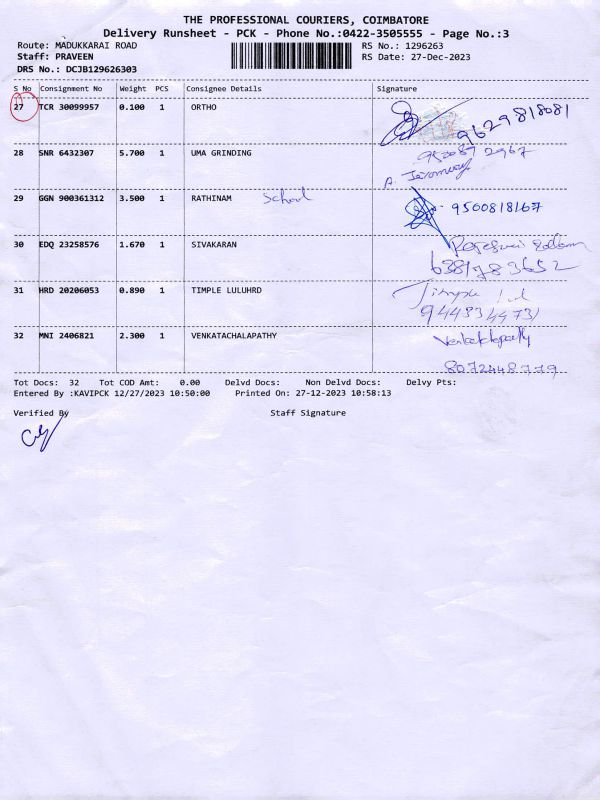 THE PROFESSIONAL COURIERS, COIMBATORE
Delivery Runsheet - PCK - Phone No.:0422-3505555 - Page No.:3
Route: MADUKKARAI ROAD RS No.: 1296263
Staff: PRAVEEN RS Date: 27-Dec-2023
DRS No.: DCJB129626303
S No Consignment No Weight PCS Consignee Details Signature
27 TCR 30099957 0.100 1 ORTHO 9629818081
28 SNR 6432307 5.700 1 UMA GRINDING
950089 2967
29 GGN 900361312 3.500 1 RATHINAM School 9500818167
30 EDQ 23258576 1.670 1 SIVAKARAN
6381783652
31 HRD 20206053 0.890 1 TIMPLE LULUHRD Timple
9448349731
32 MNI 2406821 2.300 1 VENKATACHALAPATHY
8072448779
Tot Docs: 32 Tot COD Amt: 0.00 Delvd Docs: Non Delvd Docs: Delvy Pts:
Entered By :KAVIPCK 12/27/2023 10:50:00 Printed On: 27-12-2023 10:58:13
Verified By Staff Signature